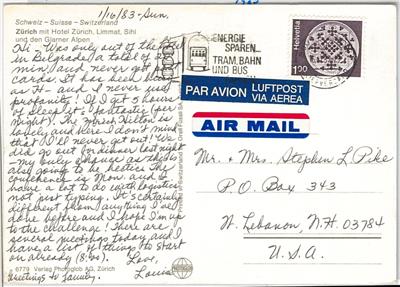 1/16/83 - Sun.
Schweiz - Suisse - Switzerland
Zürich mit Hotel Zürich, Limmat, Sihl
und den Glarner Alpen
Hi - Was only out of the
in Belgrade a total of
min, and never got
cards. It has been busy
as H - and I never use
profanity! If I get 5 hours
of sleep it's fantastic (per
night). The Zurich Hilton is
lovely and were I don't mind
that I'll never get out! We
did go out for dinner last night
- my only chance as this is
also going to be hectic. The
conference is Mon. and we
have a lot to do with logistics,
not just typing. It's certainly
different from anything I've
done before and I hope I'm up
to the challenge! There are
several meetings today and I
have a list of things to start
on already (8:00). Love,
Louise
Greetings to family.
6779 Verlag Photoglob AG, Zürich
ENERGIE
SPAREN
TRAM, BAHN
UND BUS
Helvetia
100
PAR AVION
LUFTPOST
VIA AEREA
AIR MAIL
Mr. + Mrs. Stephen L. Pike
P.O. Box 343
W. Lebanon, N.H. 03784
U.S.A.